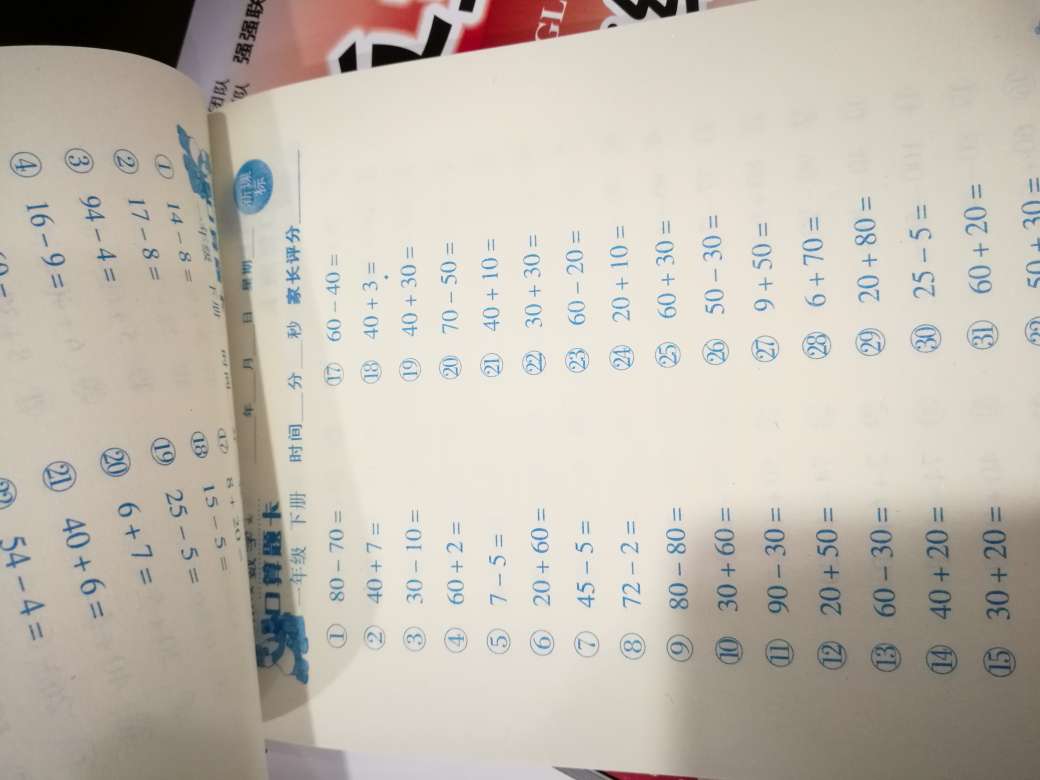 强强联
团队
GL
数学
口算题卡
一年级 下册
年 月 日 星期
时间 分 秒 家长评分
新课标
① 80－70＝
② 40＋7＝
③ 30－10＝
④ 60＋2＝
⑤ 7－5＝
⑥ 20＋60＝
⑦ 45－5＝
⑧ 72－2＝
⑨ 80－80＝
⑩ 30＋60＝
⑪ 90－30＝
⑫ 20＋50＝
⑬ 60－30＝
⑭ 40＋20＝
⑮ 30＋20＝
⑰ 60－40＝
⑱ 40＋3＝
⑲ 40＋30＝
⑳ 70－50＝
㉑ 40＋10＝
㉒ 30＋30＝
㉓ 60－20＝
㉔ 20＋10＝
㉕ 60＋30＝
㉖ 50－30＝
㉗ 9＋50＝
㉘ 6＋70＝
㉙ 20＋80＝
㉚ 25－5＝
㉛ 60＋20＝
㉜ 50＋30＝
① 14－8＝
② 17－8＝
③ 94－4＝
④ 16－9＝
⑰
⑱ 15－5＝
⑲ 25－5＝
⑳ 6＋7＝
㉑ 40＋6＝
㉒ 54－4＝